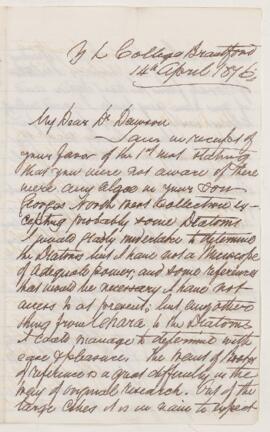 Y L College Brantford
14th April 1876
My Dear Dr Dawson
I am in receipt of
your favor of the 1st inst stating
that you were not aware if there
were any algae in your son
George's North West Collection ex-
cepting probably some Diatoms
I would gladly undertake to determine
the Diatoms but I have not a Microscope
of adequate power, and some references
that would be necessary I have not
access to at present; but any other
thing from Chara to the Diatoms
I could manage to determine with
ease & pleasure. The want of Books
of reference is a great difficulty in the
way of original research. Out of the
large cities it is in vain to expect